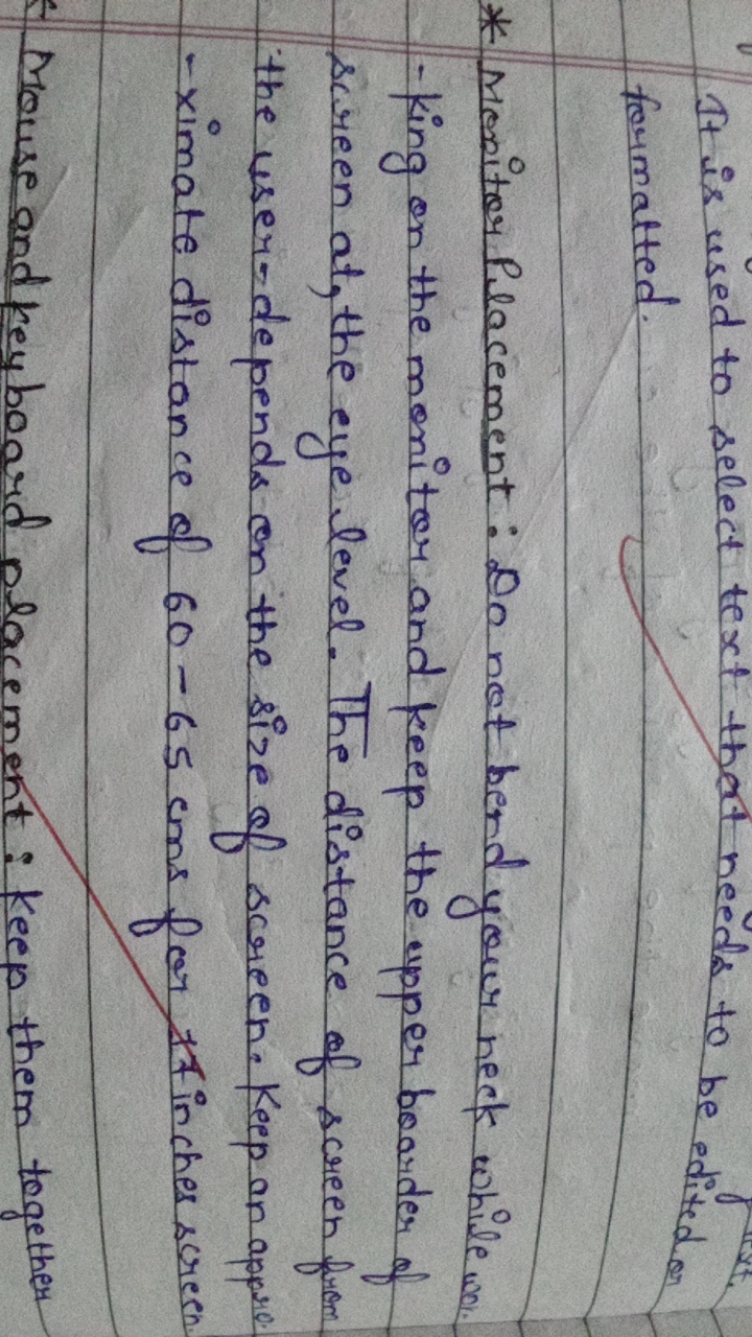 It is used to select text that needs to be edited or
formatted.
* Monitor Placement : Do not bend your neck while wor-
- king on the monitor and keep the upper boarder of
screen at, the eye level. The distance of screen from
the user-depends on the size of screen. Keep an appro-
- ximate distance of 60-65 cms for 17 inches screen.
* Mouse and keyboard placement : keep them together